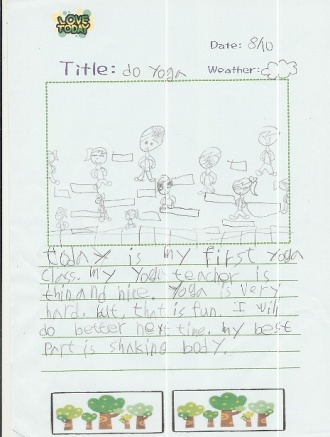 LOVE TODAY
Date: 8/10
Title: do Yoga Weather:
today is my first yoga
class. my Yoga teacher is
thin and nice. Yoga is very
hard. but, that is fun. I will
do better next time. my best
part is shaking body.